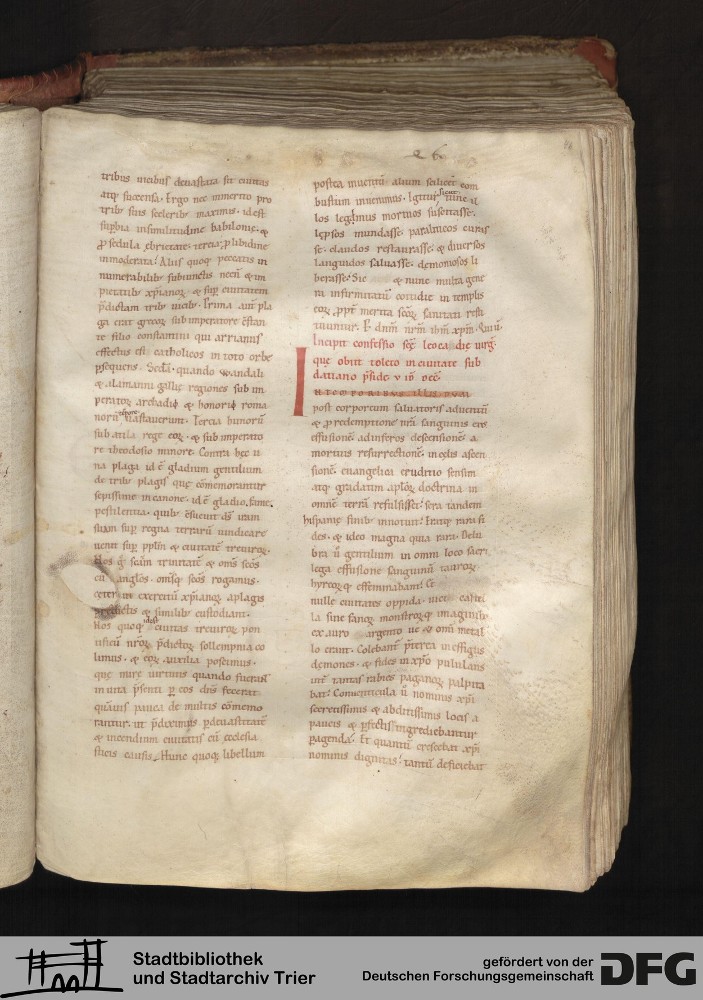 tribus uicibus deuastata sit ciuitas
atq; succensa. Ergo nec inmerito pro
trib; suis sceleribꝰ maximis. id est
supbia insimilitudine babilonie. &
ꝑ sedula ebrietate. tercia ꝓ libidine
inmoderata. Alus quoq; peccatis in
numerabilibꝫ subiunctis necñ & im
pietatibꝫ xp̄ianoꝝ & sup̄ ciuitatem
p̄dictam trib; uicib; Prima aūt pla
ga erat grecoꝝ sub imperatore c̄stan
te filio constantini qui arrianus
effectus est catholicos in toto orbe
psequens. Sc̄da quando Wandali
& alamanni gallie regiones sub im
peratoꝝ archadii & honorii roma
norū tēpore uastauerunt. Tercia hunorū
sub atila rege eoꝝ & sub imperato
re theodosio minore. Contra hęc u
na plaga id ē gladium gentilium
de trib; plagis quę cōmemorantur
sepissime in canone. id ē gladio, fame,
pestilentia. quib; c̄sueuit dꝰ iram
suam sup̄ regna terrarū uindicare
uenit sup̄ pp̄lm & ciuitatē treuiroꝝ.
Nos g̊ sc̄am trinitatē & om̄s sc̄os
cū anglos. omīsq; sc̄os rogamus.
ceterū exercitū xp̄ianoꝝ a plagis
predictis & similib; custodiant.
Nos quoq; idest ciuitas treuiroꝝ pon
tificū nr̄oꝝ p̄dictoꝝ sollempnia co
limus. & eoꝝ auxilia poscimus.
quę mire uirtutis quando fuerant
in uita p̄senti p eos dn̄s fecerat
quāuis pauca de multis cōmemo
rantur. ut p̄diximꝰ ꝑ deuastitatē
& incendium ciuitatis cū ecclesia
sticis causis. Hunc quoq; libellum
postea inuentū alium scilicet com
bustum inuenimus. Igitur sicut tunc il
los legimus mortuos suscitasse.
lępsos mundasse. paraliticos curas
se. claudos restaurasse. & diuersos
languidos saluasse. demoniosos li
berasse. Sic & nunc multa gene
ra infirmitatū cotidie in templis
eoꝝ ꝓpt̄ merita sc̄oꝝ sanitati resti
tuuntur. P dnm̄ nrm̄ ihm̄ xp̄m. Qui ū
Incipit confessio sc̄ę leocadię uirḡ
quę obiit toleto in ciuitate sub
datiano p̄side v id dec̄
IN TEMPORIBVS illis DVM
post corporeum saluatoris aduentū
& ꝓ redemptione nr̄a sanguinis eiꝰ
effusionē ad inferos descensionē. a
mortuis resurrectionē. in cęlis ascen
sionē euangelica eruditio sensim
atq; gradatim aplōꝝ doctrina in
omnē terrā refulsisset. sera tandem
hispanię finib; innotuit. Eratq; rara fi
des. & ideo magna quia rara. Delu
bra ū gentilium in omni loco sacri
lega effusione sanguinū tauroꝝ.
hyrcoꝝq; effeminabant. Ce
nulle ciuitates oppida. uici castel
la sine fanoꝝ monstroꝝq; imaginib;
ex auro argento ue & omī metal
lo erant. Colebant p̄terea in effigiis
dęmones. & fides in xp̄o pululans
int̄ tantas rabies paganoꝝ palpita
bat. Conuenticula ū nominis xp̄i
secretissimis & abditissimis locis a
paucis & ꝑfectis ingrediebantur
ꝑagenda. Et quantū crescebat xp̄i
nominis dignitas. tantū deficiebat
Stadtbibliothek
und Stadtarchiv Trier
gefördert von der
Deutschen Forschungsgemeinschaft
DFG